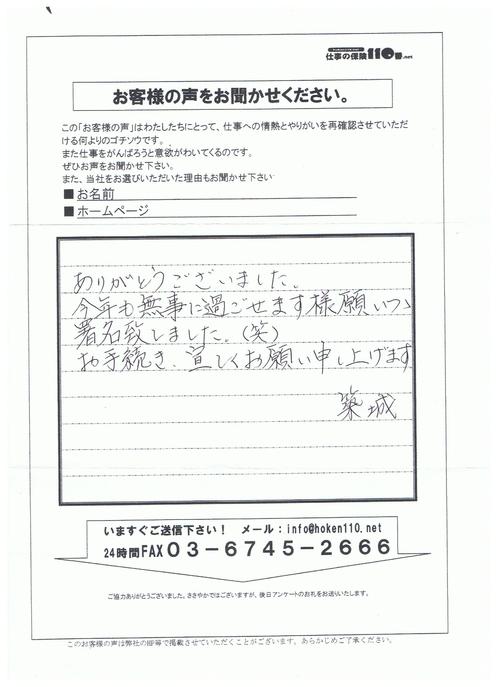 仕事の保険110番.net
お客様の声をお聞かせください。
この「お客様の声」はわたしたちにとって、仕事への情熱とやりがいを再確認させていただ
ける何よりのゴチソウです。
また仕事をがんばろうと意欲がわいてくるのです。
ぜひお声をお聞かせ下さい。
また、当社をお選びいただいた理由もお聞かせ下さい
■お名前
■ホームページ
ありがとうございました。
今年も無事に過ごせます様願いつつ
署名致しました。(笑)
お手続き、宜しくお願い申し上げます
築城
いますぐご送信下さい! メール:info@hoken110.net
24時間FAX03-6745-2666
ご協力ありがとうございました。ささやかではございますが、後日アンケートのお礼をお送りいたします。
このお客様の声は弊社のHP等で掲載させていただくことがございます。あらかじめご了承ください。